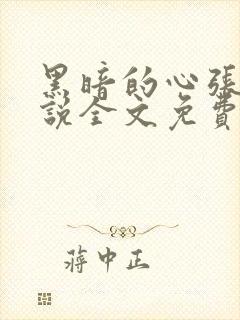 黑暗的心張
說全文免費
蔣中正